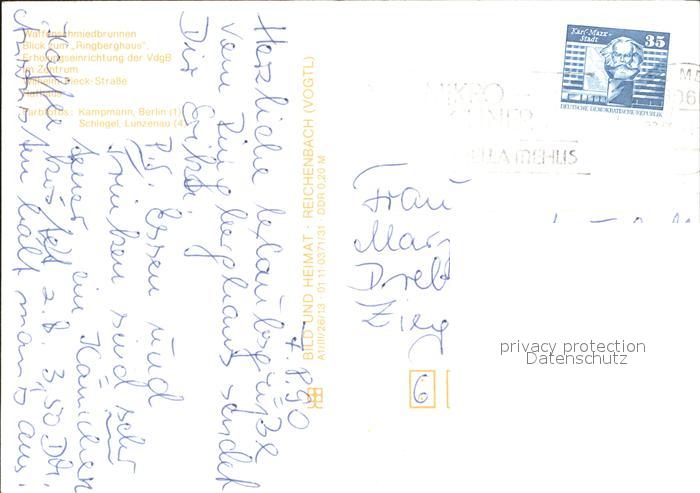 Waffenschmiedbrunnen
Blick zum „Ringberghaus",
Erholungseinrichtung der VdgB
im Zentrum
Wilhelm-Pieck-Straße
Farbfotos: Kampmann, Berlin (1)
Schlegel, Lunzenau (4)
7. 8. 90
Herzliche Urlaubsgrüße
vom Ringberghaus sendet
Dir Erika.
P.S. Essen und
Trinken sind sehr
teuer, ein Kännchen
Kaffee kostet z.B. 3,50 DM.
Ansonsten hält man's aus.
BILD UND HEIMAT · REICHENBACH (VOGTL)
A1/III/26/13 · 01 11 0371/31 DDR 0,20 M
Karl-Marx-
Stadt
35
DEUTSCHE DEMOKRATISCHE REPUBLIK
MIKRO
MEHLIS
Frau
6
privacy protection
Datenschutz